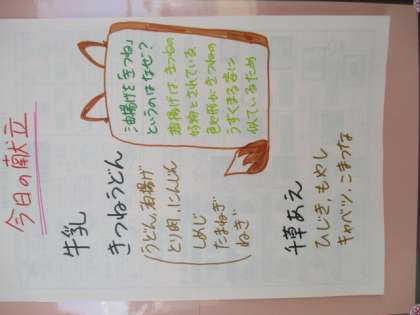 今日の献立
牛乳
きつねうどん
うどん、油揚げ
とり肉、にんじん
しめじ
たまねぎ
ねぎ
千草あえ
ひじき、もやし
キャベツ、こまつな
油揚げを「きつね」
というのはなぜ？
油揚げは、きつねの
好物とされている
色や形がきつねの
うずくまる姿に
似ているため